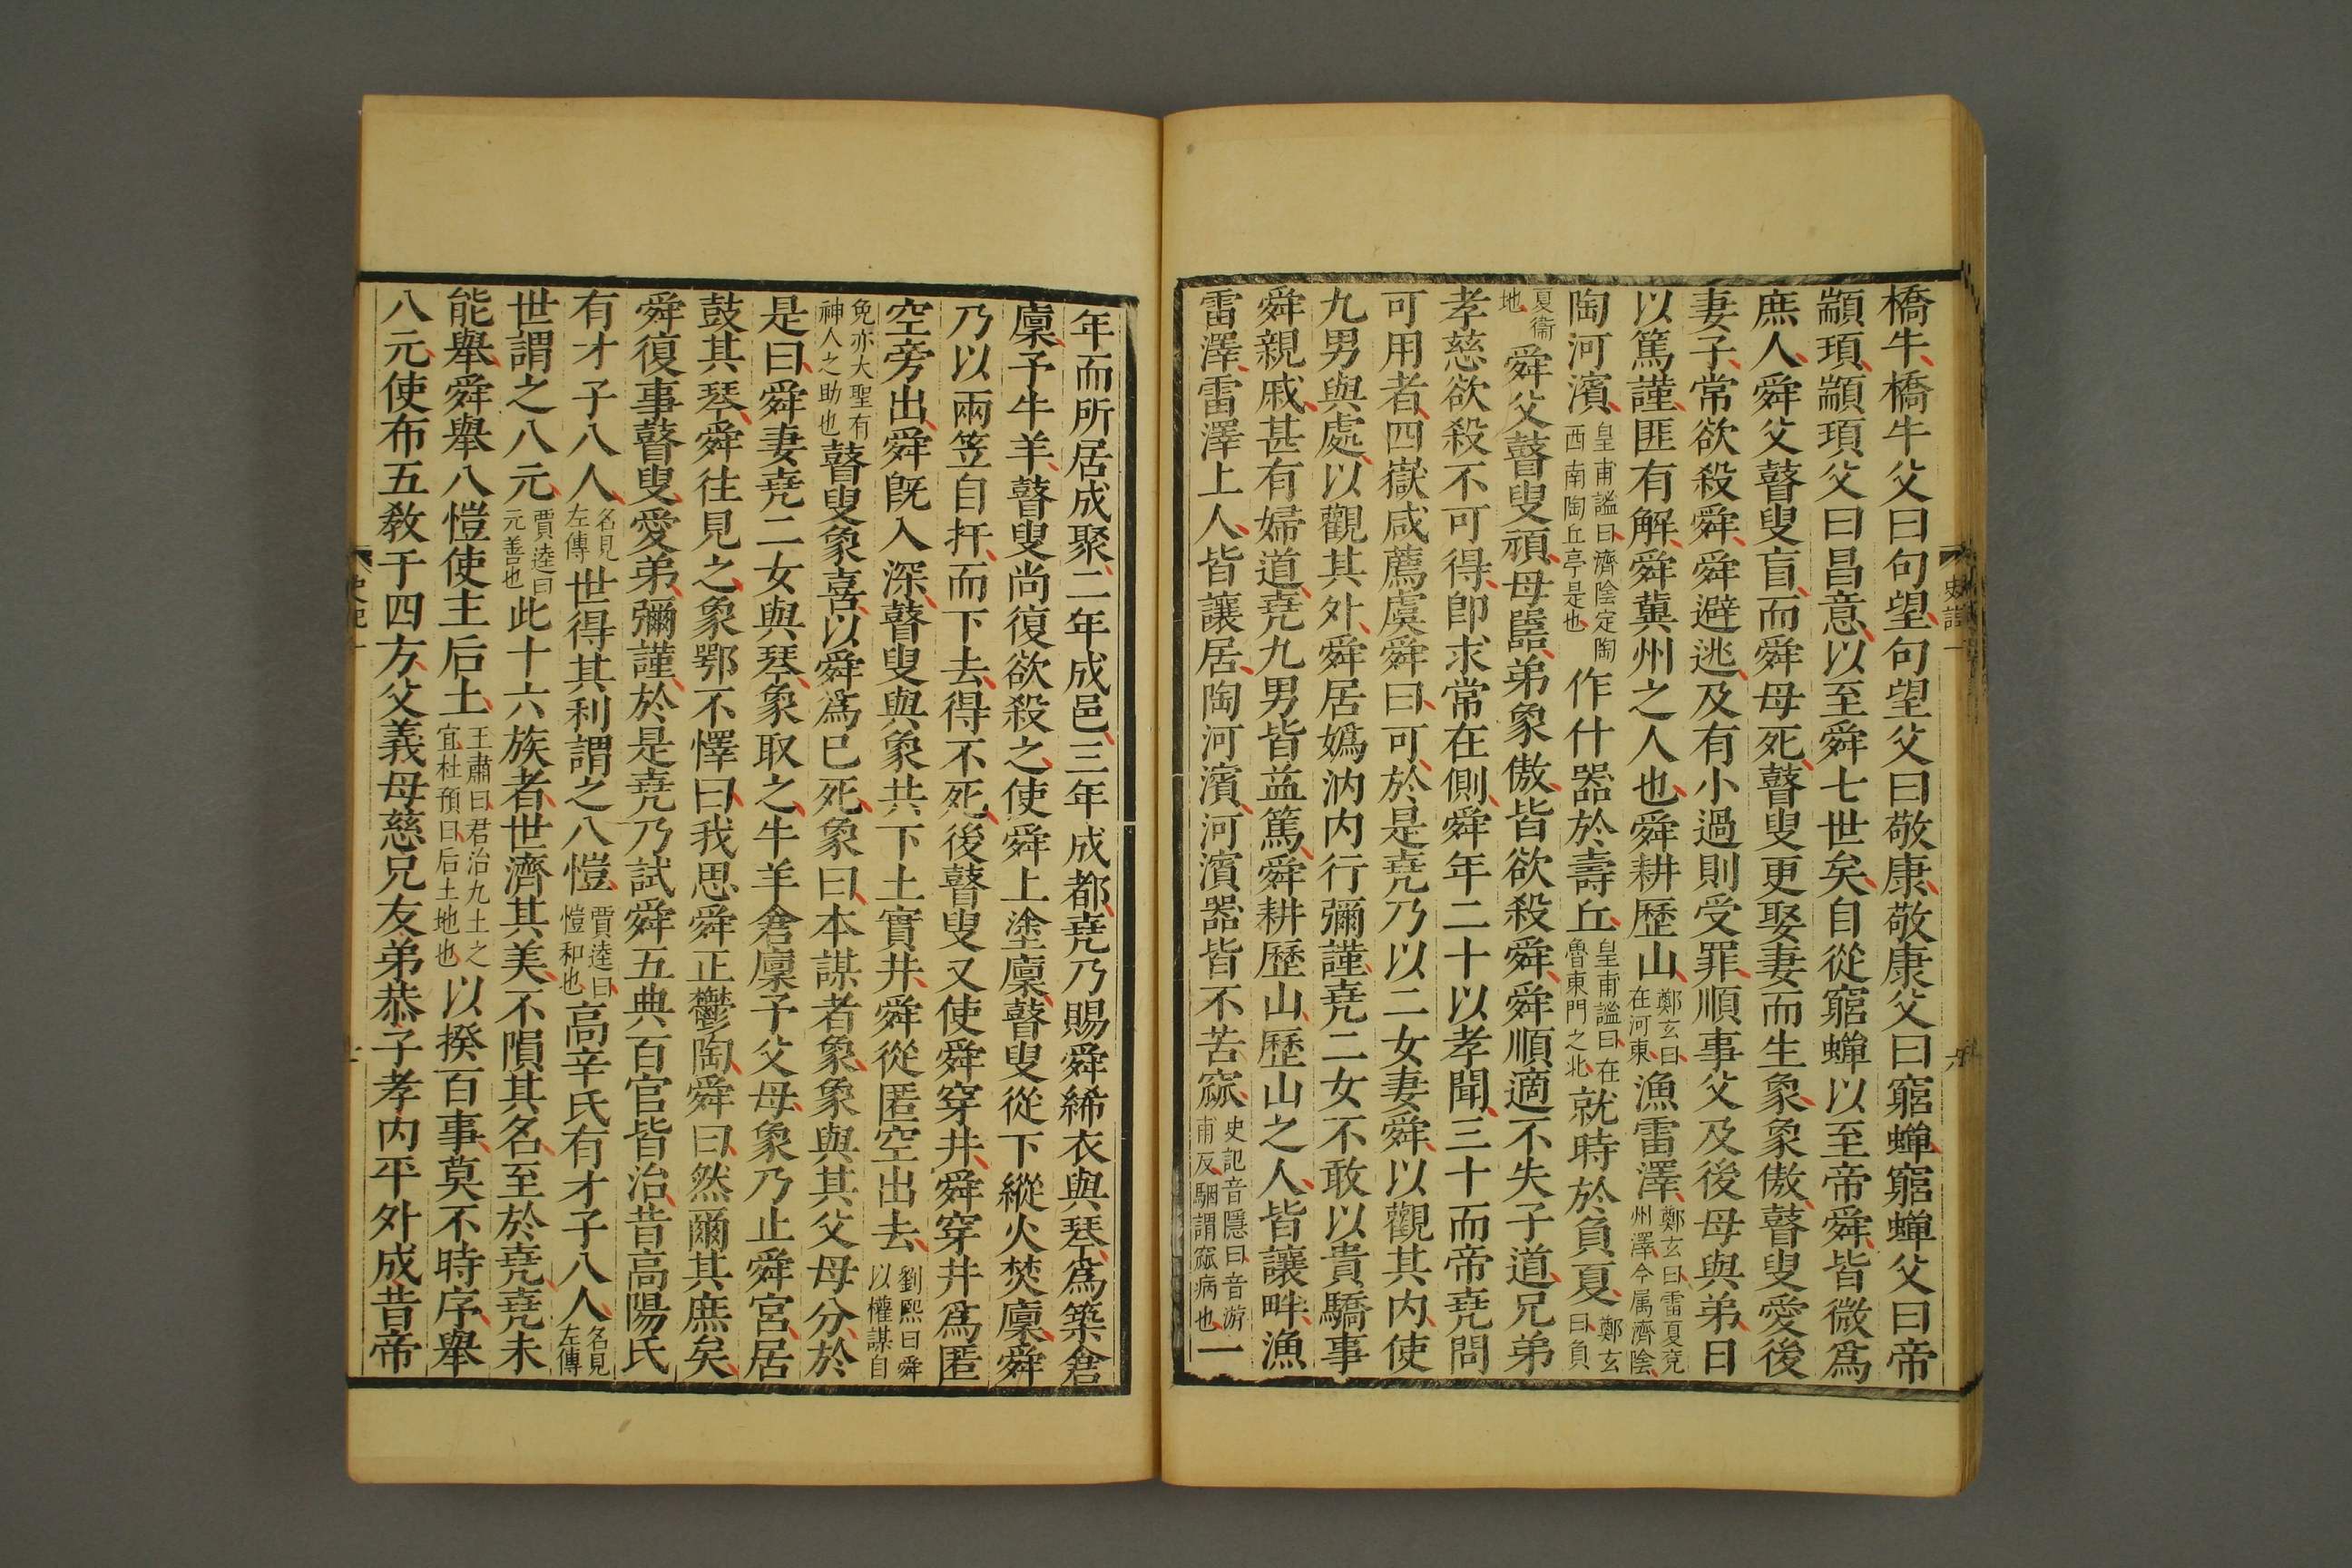 橋牛橋牛父曰句望句望父曰敬康敬康父曰窮蟬窮蟬父曰帝
顓頊顓頊父曰昌意以至舜七世矣自從窮蟬以至帝舜皆微爲
庶人舜父瞽叟盲而舜母死瞽叟更娶妻而生象象傲瞽叟愛後
妻子常欲殺舜舜避逃及有小過則受罪順事父及後母與弟日
以篤謹匪有解舜冀州之人也舜耕歷山鄭玄曰在河東漁雷澤鄭玄曰雷夏兗州澤今属濟陰
陶河濱皇甫謐曰濟陰定陶西南陶丘亭是也作什器於壽丘皇甫謐曰在魯東門之北就時於負夏鄭玄曰負
夏衞地舜父瞽叟頑母嚚弟象傲皆欲殺舜舜順適不失子道兄弟
孝慈欲殺不可得卽求常在側舜年二十以孝聞三十而帝堯問
可用者四嶽咸薦虞舜曰可於是堯乃以二女妻舜以觀其内使
九男與處以觀其外舜居嬀汭内行彌謹堯二女不敢以貴驕事
舜親戚甚有婦道堯九男皆益篤舜耕歷山歷山之人皆讓畔漁
雷澤雷澤上人皆讓居陶河濱河濱器皆不苦窳史記音隱曰音游甫反駰謂窳病也一
年而所居成聚二年成邑三年成都堯乃賜舜絺衣與琴爲築倉
廩予牛羊瞽叟尚復欲殺之使舜上塗廩瞽叟從下縱火焚廩舜
乃以兩笠自扞而下去得不死後瞽叟又使舜穿井舜穿井爲匿
空旁出舜旣入深瞽叟與象共下土實井舜從匿空出去劉熙曰舜以權謀自
免亦大聖有神人之助也瞽叟象喜以舜爲已死象曰本謀者象象與其父母分於
是曰舜妻堯二女與琴象取之牛羊倉廩予父母象乃止舜宮居
鼓其琴舜往見之象鄂不懌曰我思舜正鬱陶舜曰然爾其庶矣
舜復事瞽叟愛弟彌謹於是堯乃試舜五典百官皆治昔高陽氏
有才子八人名見左傳世得其利謂之八愷賈逵曰愷和也高辛氏有才子八人名見左傳
世謂之八元賈逵曰元善也此十六族者世濟其美不隕其名至於堯堯未
能舉舜舉八愷使主后土王肅曰君治九土之宜杜預曰后土地也以揆百事莫不時序舉
八元使布五敎于四方父義母慈兄友弟恭子孝内平外成昔帝
史記一
六